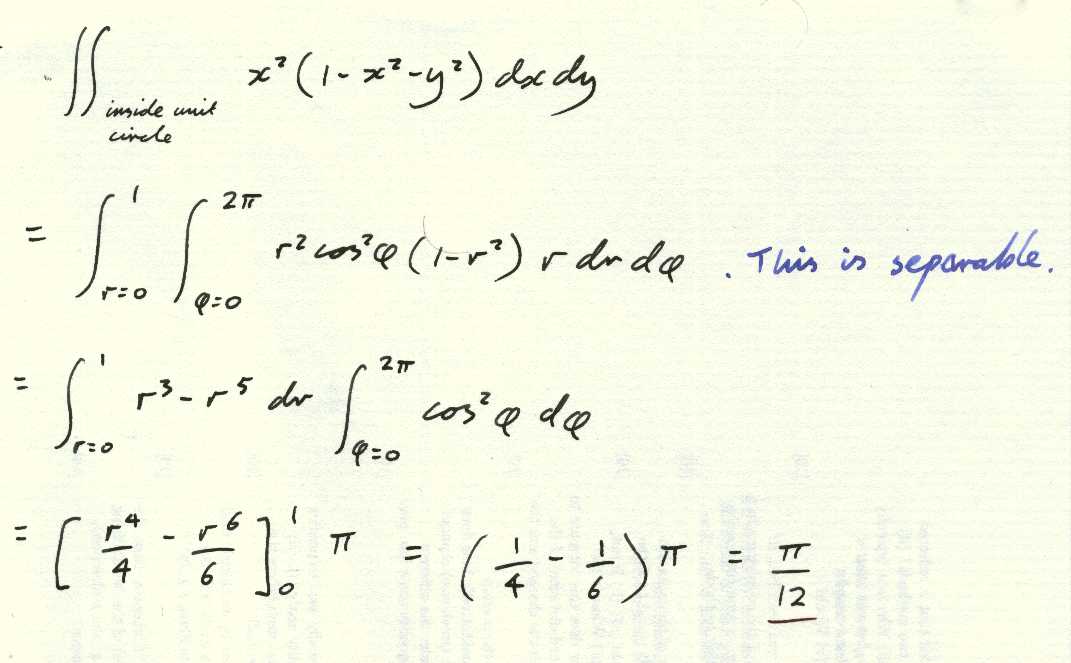 ∬_{inside unit circle} x² (1 - x² - y²) dx dy
= ∫_{r=0}^{1} ∫_{φ=0}^{2π} r² cos²φ (1 - r²) r dr dφ . This is separable.
= ∫_{r=0}^{1} r³ - r⁵ dr ∫_{φ=0}^{2π} cos²φ dφ
= [ r⁴/4 - r⁶/6 ]₀¹ π = ( 1/4 - 1/6 ) π = π/12